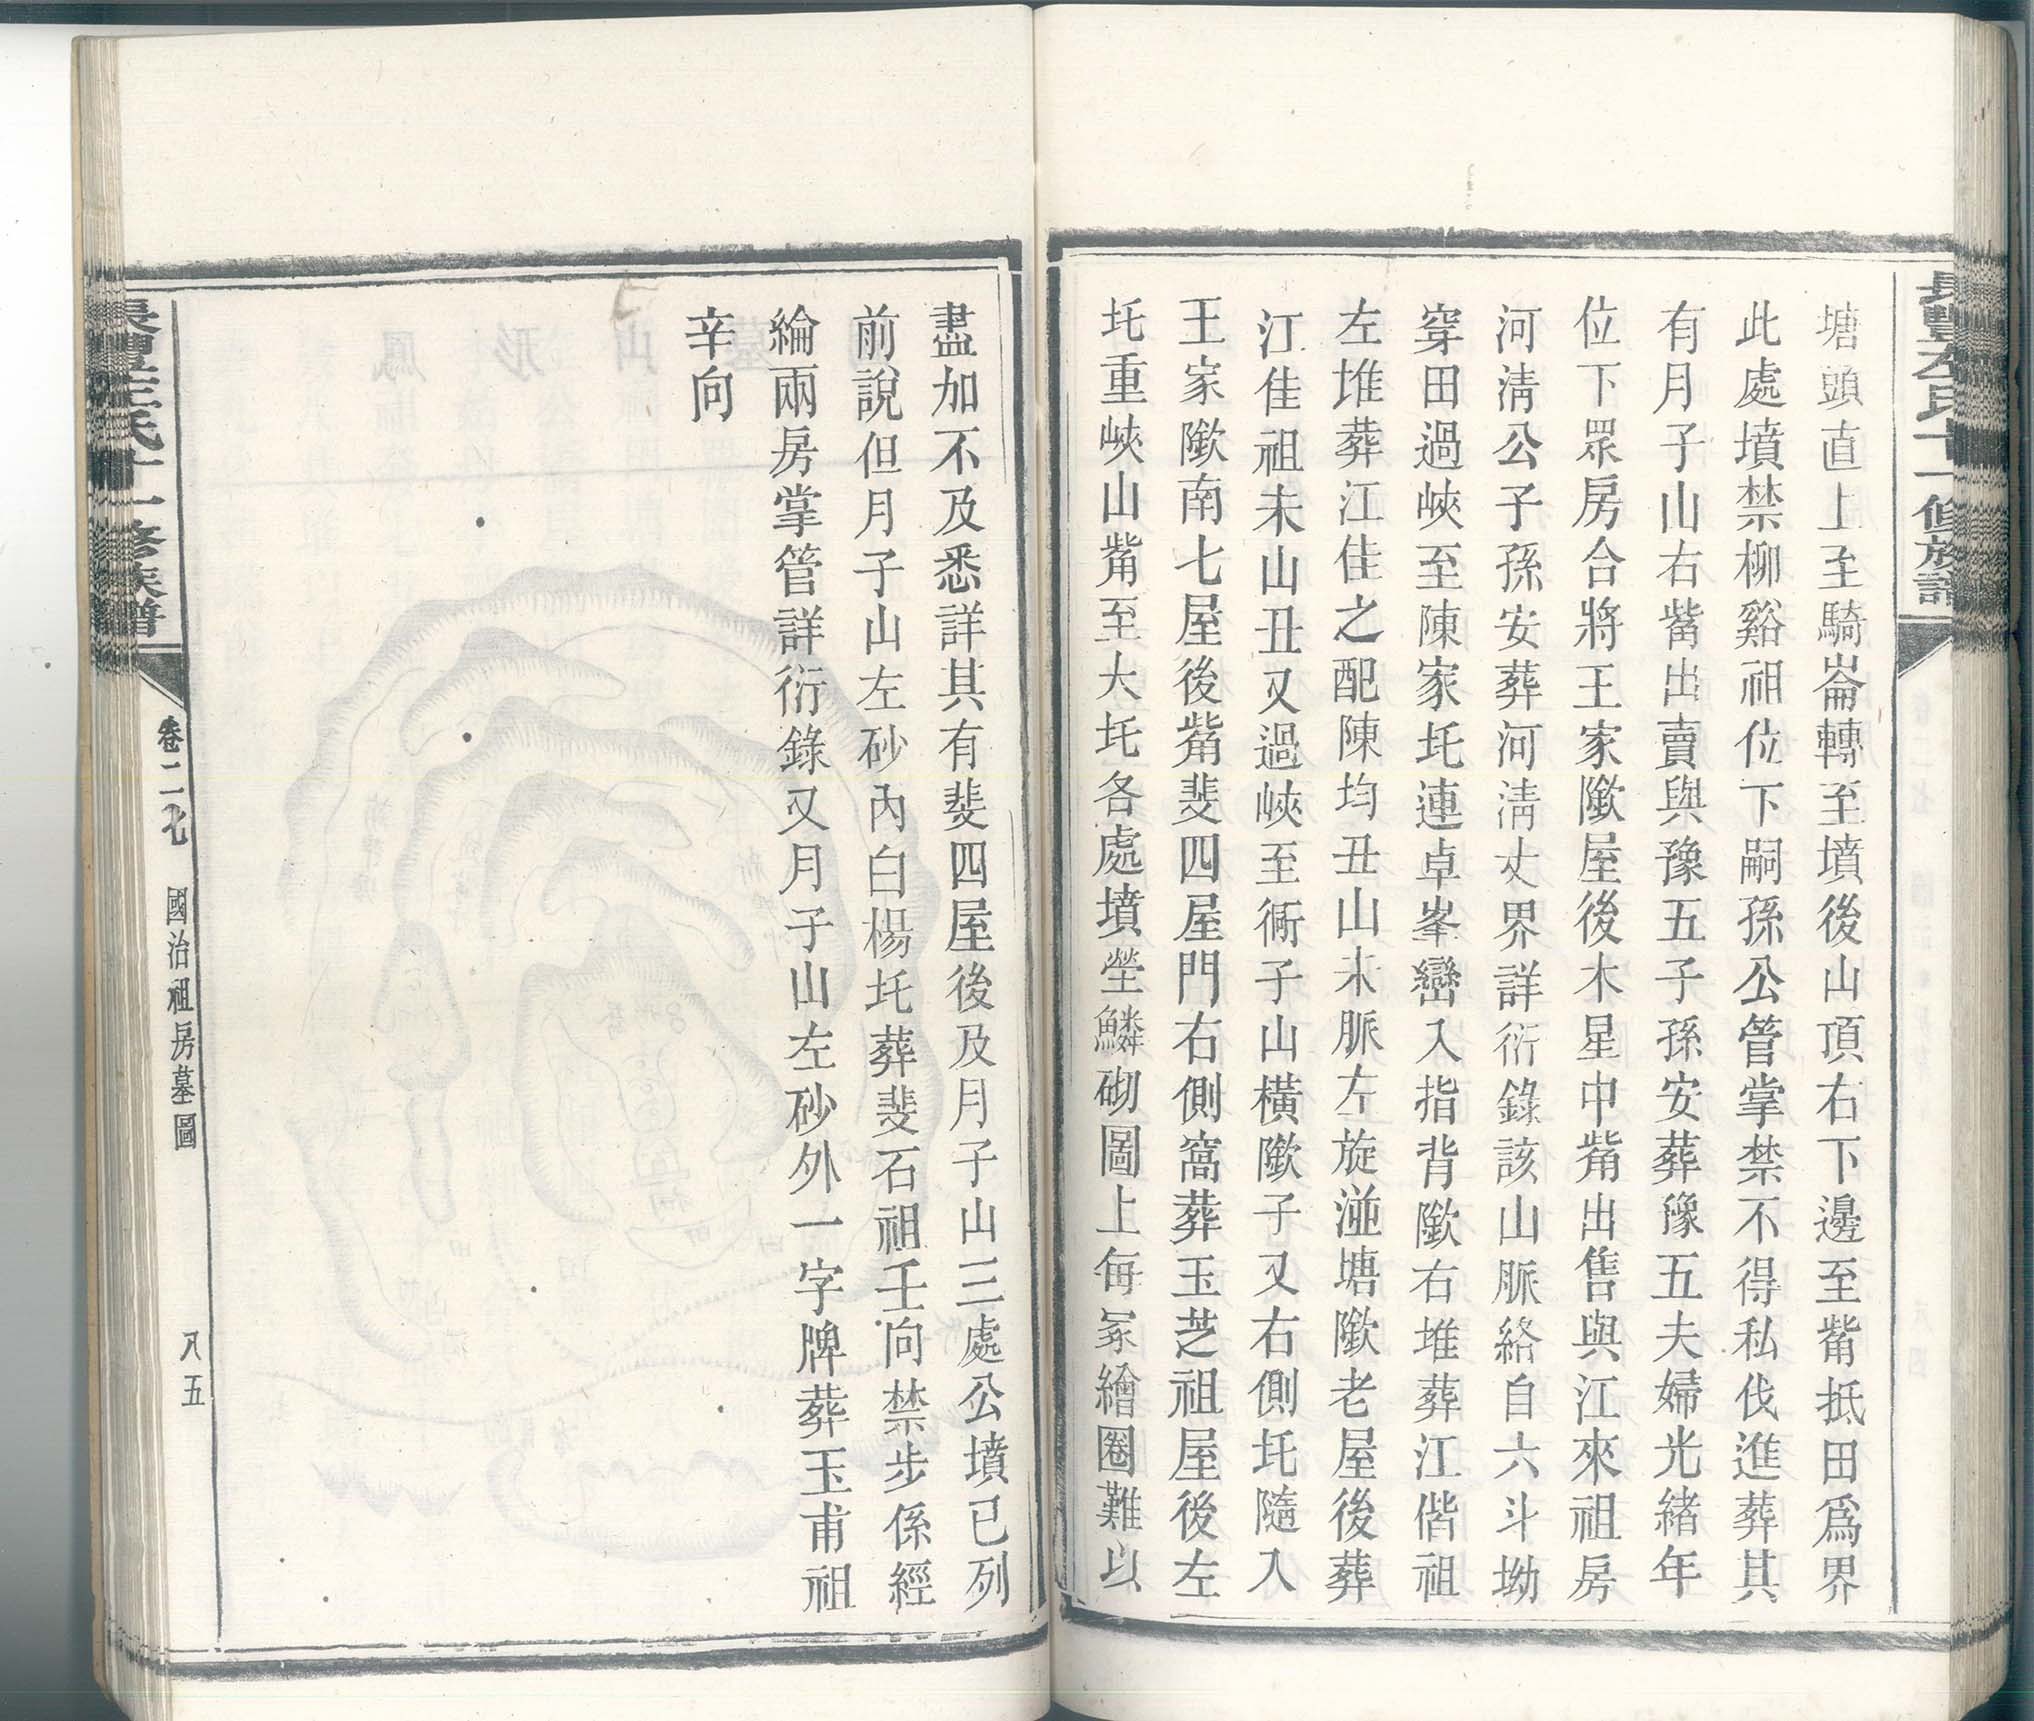 長豐左氏十一修族譜
塘頭直上至騎崙轉至墳後山頂右下邊至觜抵田爲界
此處墳禁柳谿祖位下嗣孫公管掌禁不得私伐進葬其
有月子山右觜出賣與豫五子孫安葬豫五夫婦光緒年
位下眾房合將王家隞屋後木星中觜出售與江來祖房
河淸公子孫安葬河淸丈界詳衍錄該山脈絡自六斗坳
穿田過峽至陳家圫連卓峯巒入指背隞右堆葬江偕祖
左堆葬江佳之配陳均丑山未脈左旋湴塘隞老屋後葬
江佳祖未山丑又過峽至衕子山橫隞子又右側圫隨入
王家隞南七屋後觜斐四屋門右側窩葬玉芝祖屋後左
圫重峽山觜至大圫各處墳塋鱗砌圖上每冢繪圈難以
盡加不及悉詳其有斐四屋後及月子山三處公墳已列
前說但月子山左砂內白楊圫葬斐石祖壬向禁步係經
綸兩房掌管詳衍錄又月子山左砂外一字牌葬玉甫祖
辛向
長豐左氏十一修族譜
卷二七 國治祖房墓圖 八五